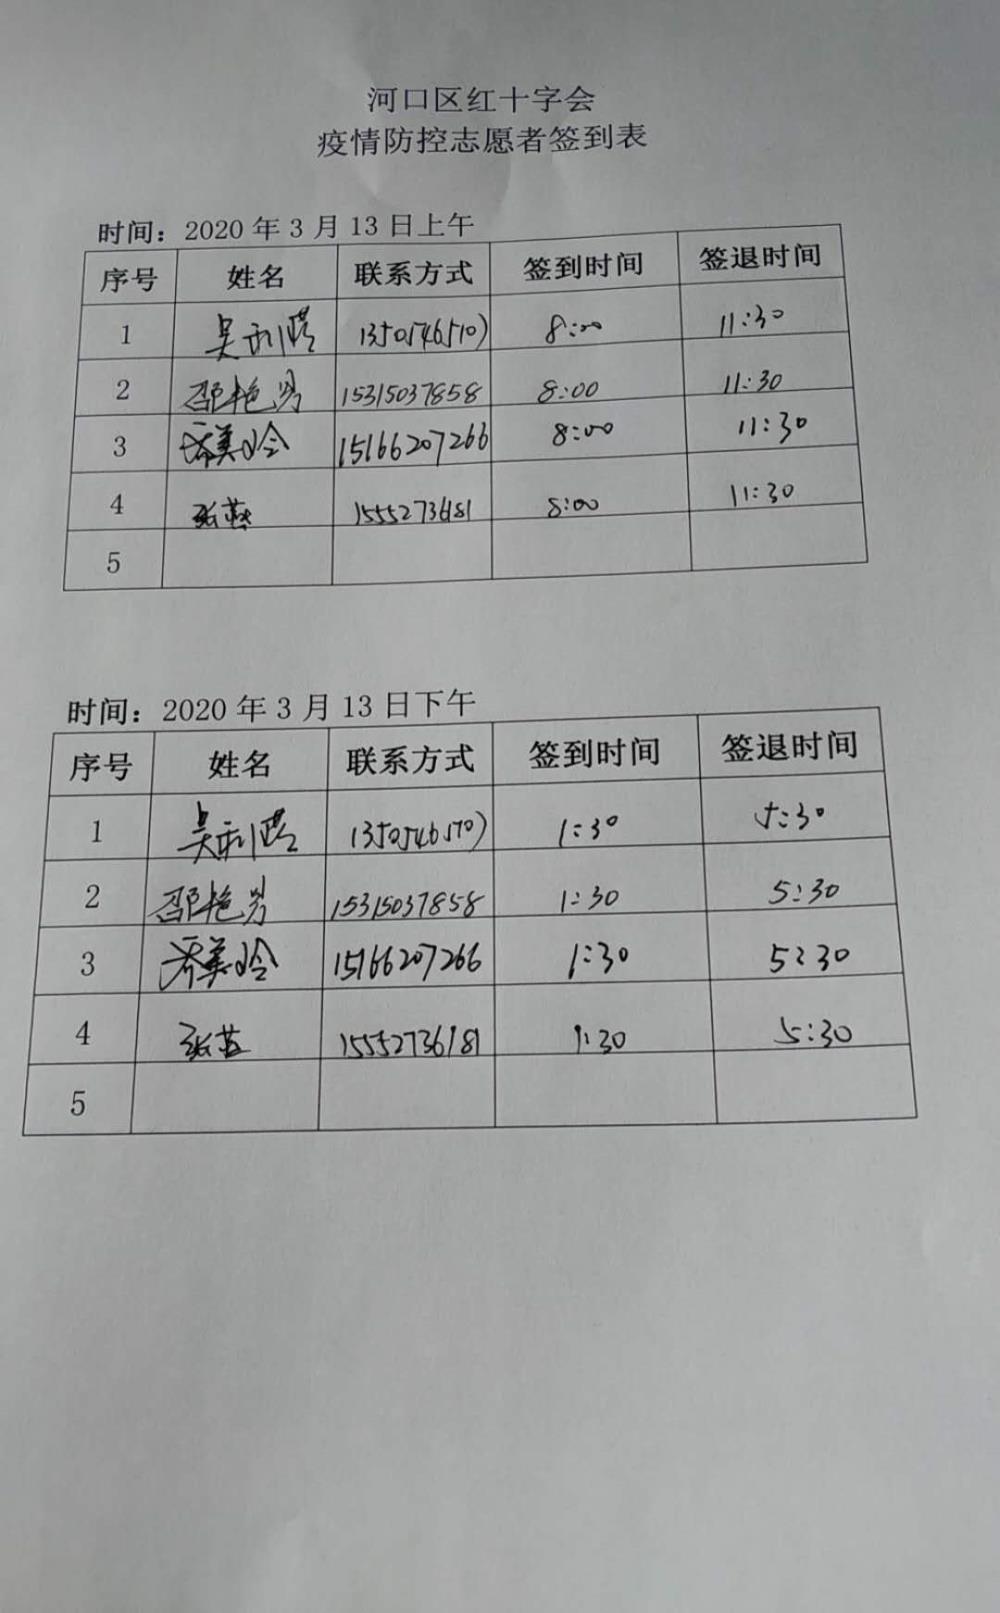 河口区红十字会
疫情防控志愿者签到表
时间：2020年3月13日上午
序号 姓名 联系方式 签到时间 签退时间
1 8:00 11:30
2 邵艳男 15315037858 8:00 11:30
3 15166207266 8:00 11:30
4 张燕 15552736181 8:00 11:30
5
时间：2020年3月13日下午
序号 姓名 联系方式 签到时间 签退时间
1 1:30 5:30
2 邵艳男 15315037858 1:30 5:30
3 15166207266 1:30 5:30
4 15552736181 1:30 5:30
5